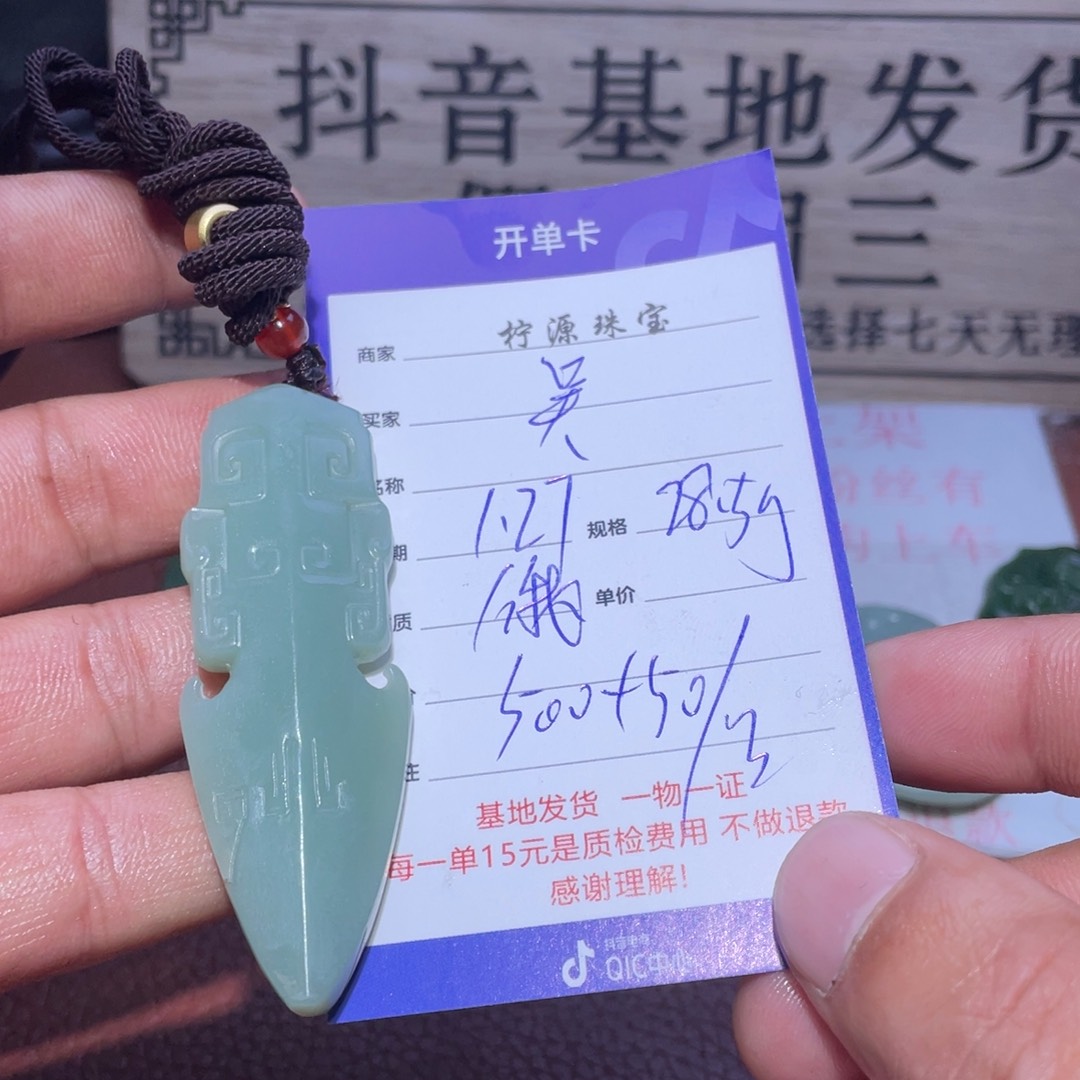 抖音基地发货
三
选择七天无理
开单卡
商家 柠源珠宝
买家 吴
名称
期 1.27 规格 28.5g
质 俄 单价
500+50/
注
基地发货 一物一证
每一单15元是质检费用 不做退款
感谢理解！
抖音电商
QIC中心
架
粉丝有
上车
款